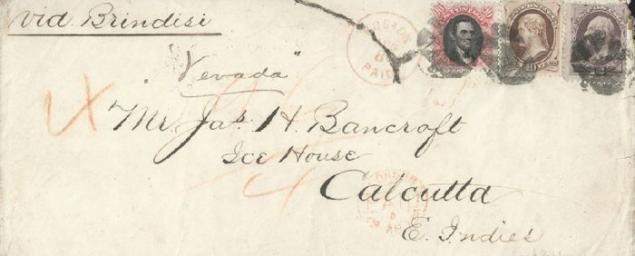 via Brindisi
PAID
"Nevada"
Mr Jas H. Bancroft
Ice House
Calcutta
E. Indies